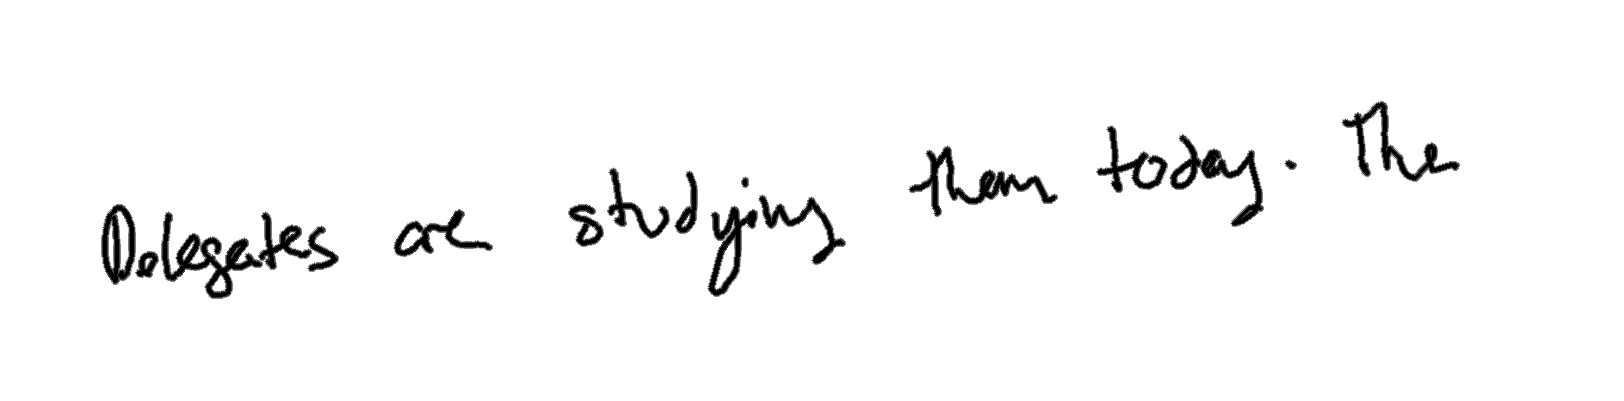 Delegates are studying them today. The